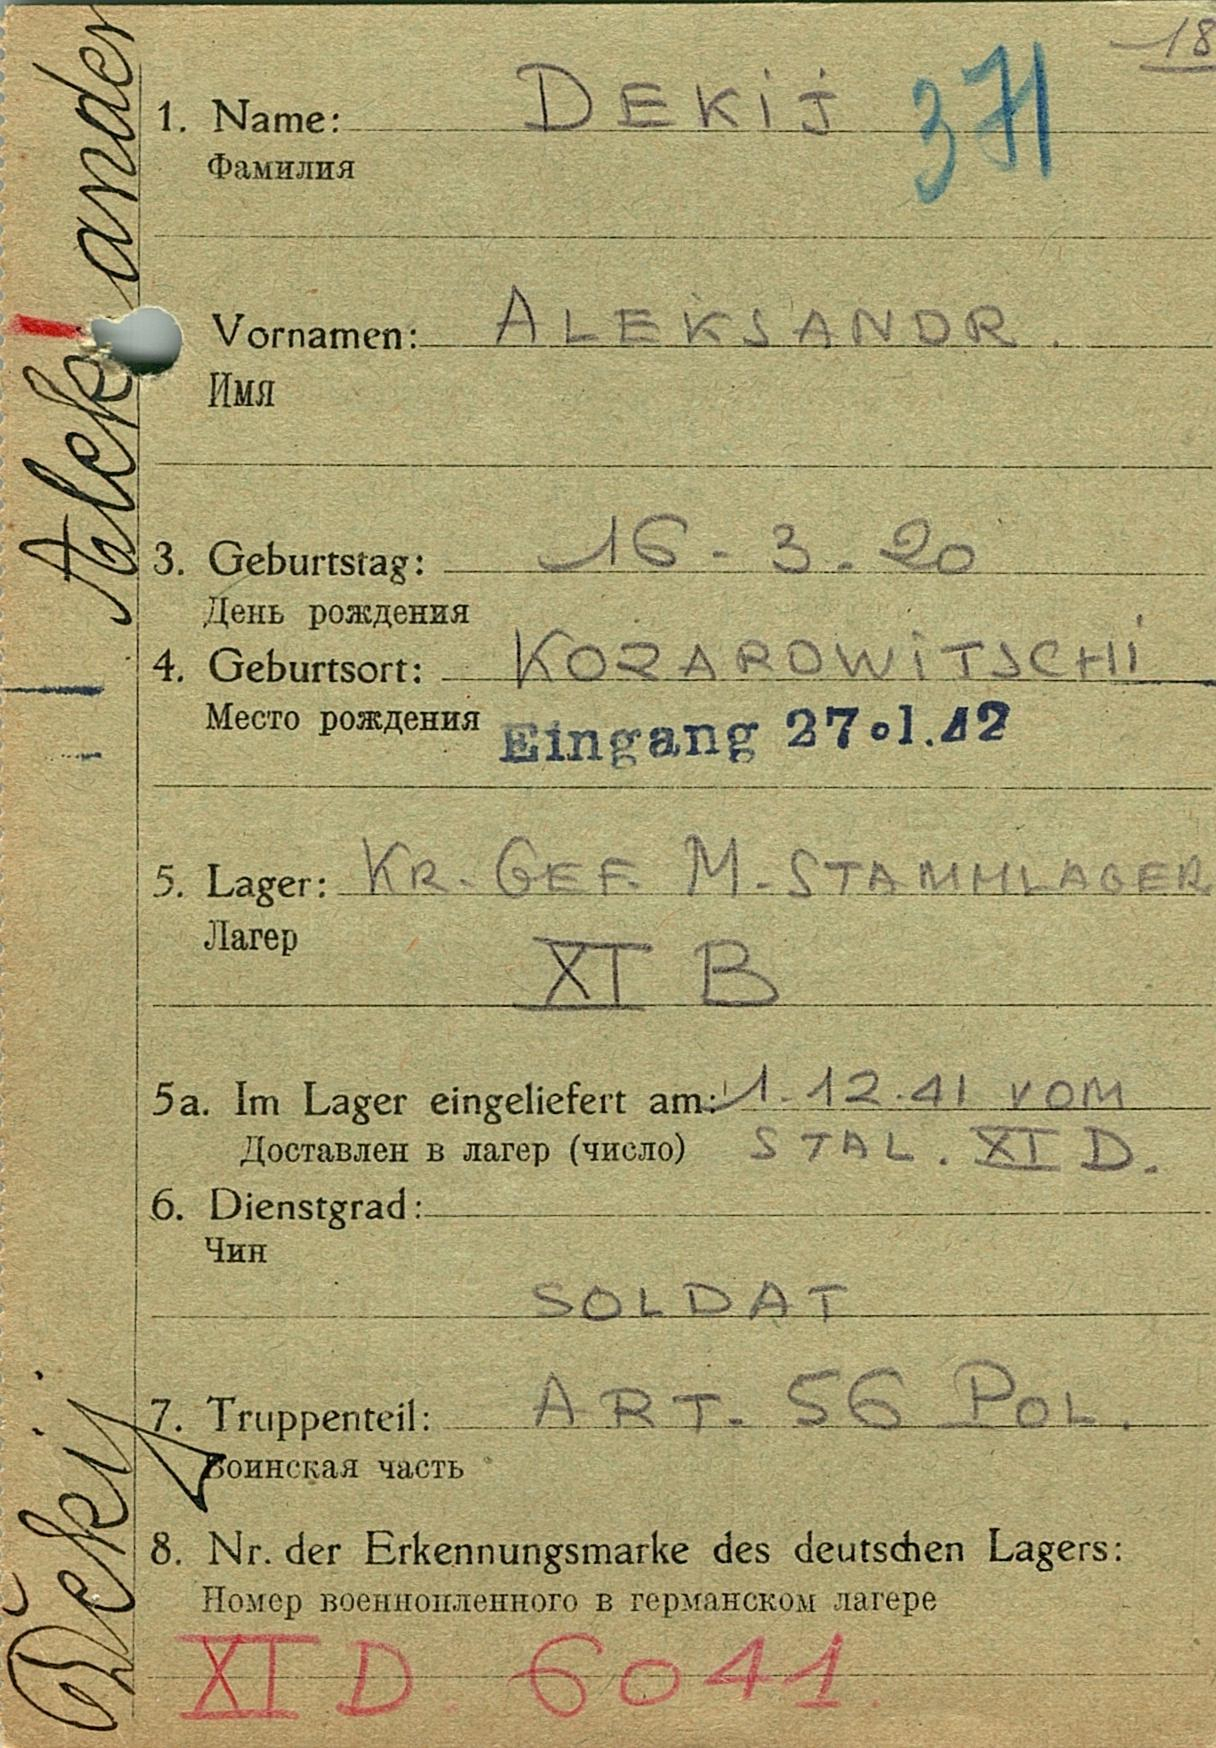 18
1. Name: DEKiJ 371
Фамилия
Vornamen: ALEKSANDR.
Имя
3. Geburtstag: 16-3.20
День рождения
4. Geburtsort: KOZAROWiTSCHi
Место рождения
Eingang 27.1.42
5. Lager: KR. GEF. M-STAMMLAGER
Лагер
XI B
5a. Im Lager eingeliefert am: 1.12.41 VOM
Доставлен в лагер (число) STAL. XI D.
6. Dienstgrad:
Чин
SOLDAT
7. Truppenteil: ART. 56 POL.
Воинская часть
8. Nr. der Erkennungsmarke des deutschen Lagers:
Номер военнопленного в германском лагере
XI D. 6041.
Dekij Alekxander